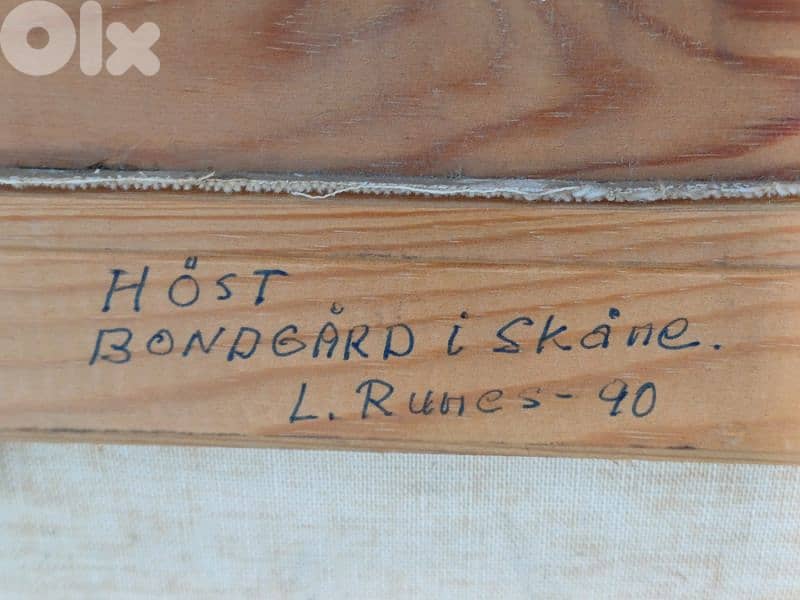 Olx
HÖST
BONDGÅRD i Skåne.
L. Runes - 90